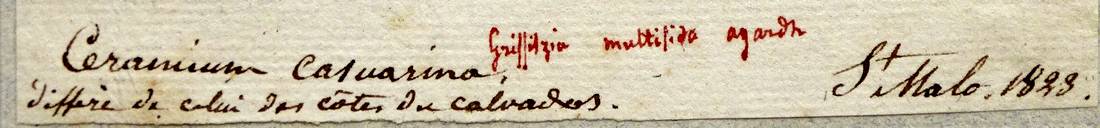 Ceramium casuarina, Griffitzia multifida agardh
differe de celui des côtes du calvados.
St Malo. 1823.